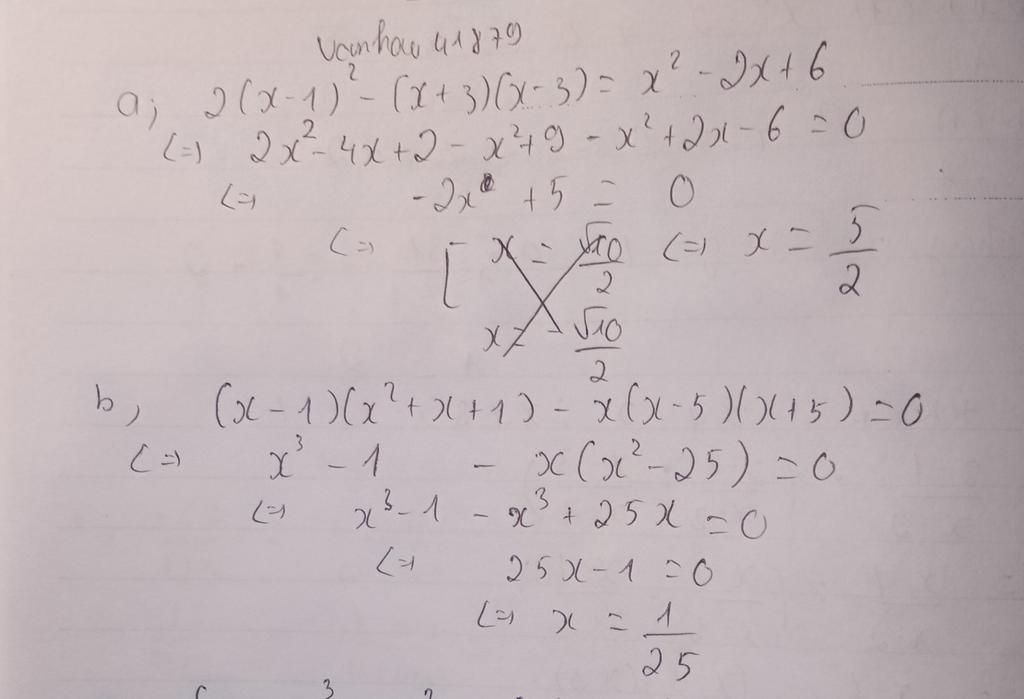 vanhau 41879
a, 2(x-1)² - (x+3)(x-3) = x² - 2x + 6
<=> 2x² - 4x + 2 - x² + 9 - x² + 2x - 6 = 0
<=> -2x + 5 = 0
<=> [ x = √10/2 <=> x = 5/2
x = -√10/2
b, (x-1)(x²+x+1) - x(x-5)(x+5) = 0
<=> x³ - 1 - x(x² - 25) = 0
<=> x³ - 1 - x³ + 25x = 0
<=> 25x - 1 = 0
<=> x = 1/25